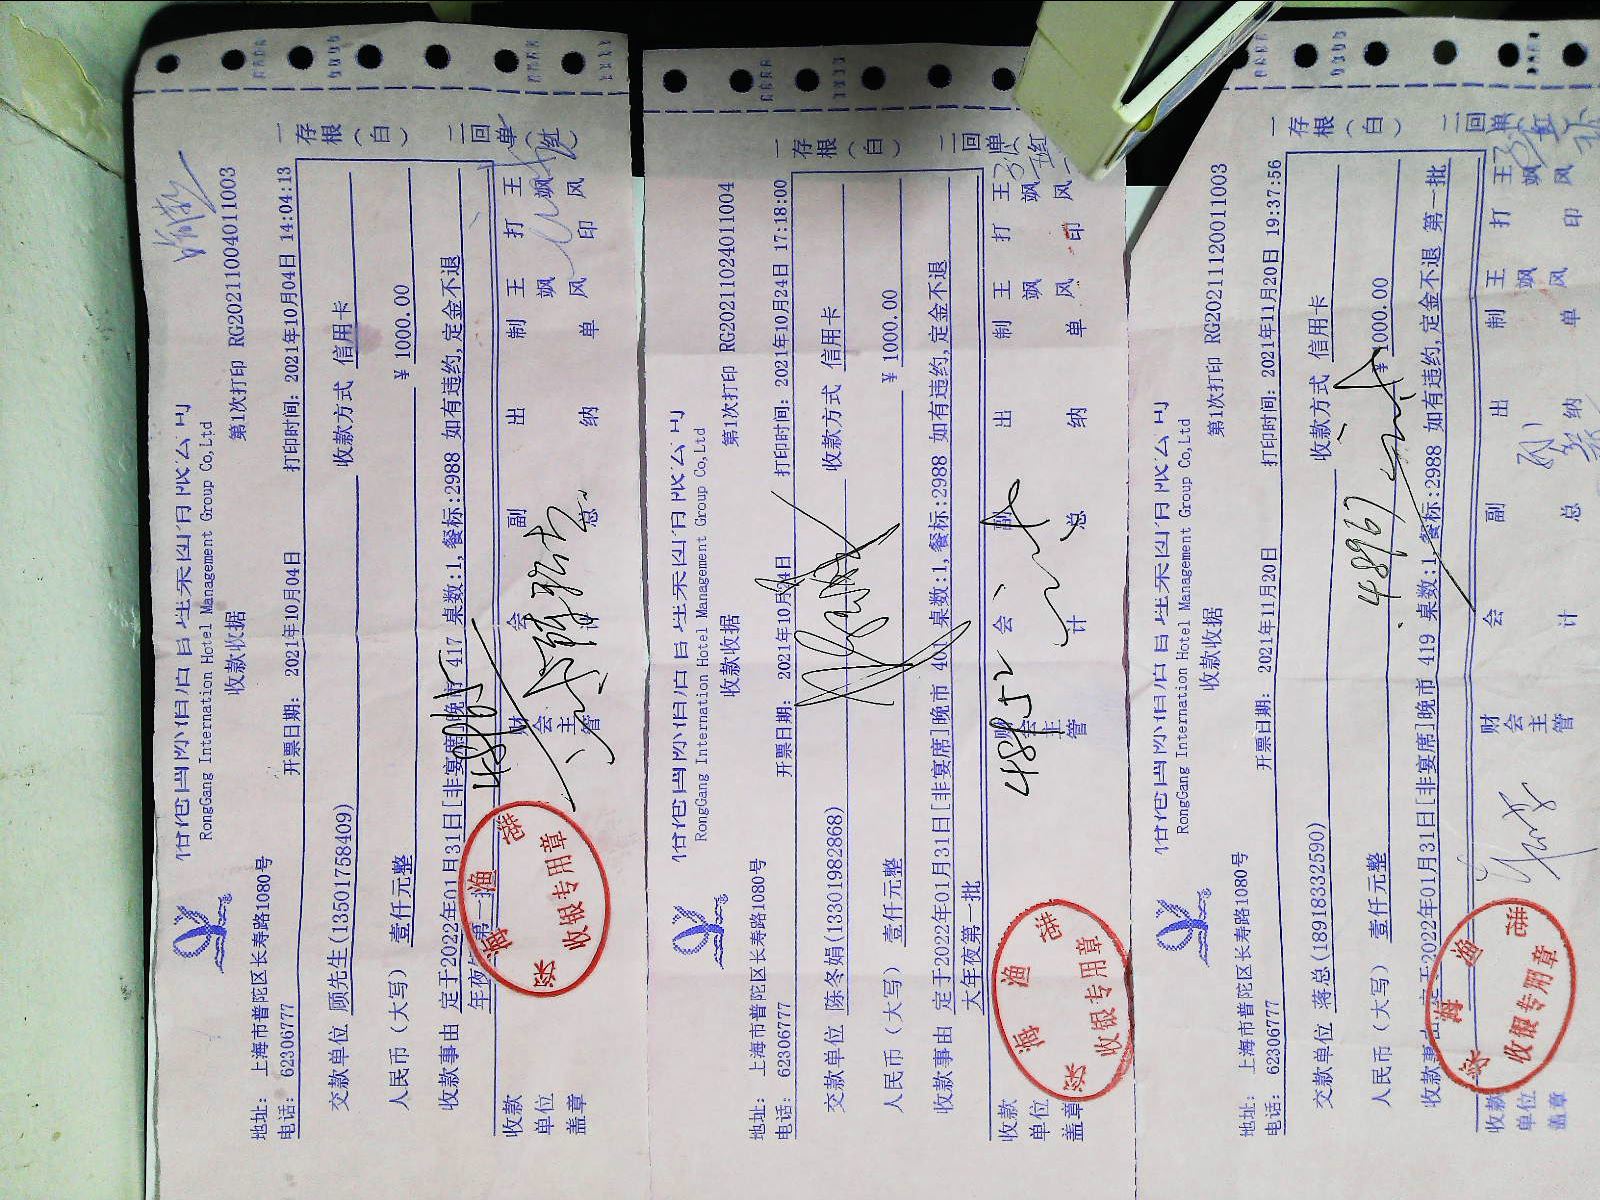 RongGang Internation Hotel Management Group Co,Ltd
收款收据 第1次打印 RG20211004011003
地址: 上海市普陀区长寿路1080号
电话: 62306777 开票日期: 2021年10月04日 打印时间: 2021年10月04日 14:04:13
交款单位 顾先生(13501758409) 收款方式 信用卡
人民币（大写） 壹仟元整 ￥ 1000.00
收款事由 定于2022年01月31日[非宴席]晚市 417 桌数:1,餐标:2988 如有违约,定金不退
年夜第一批
收款单位盖章 财会主管 会 副总 出纳 制单 王飒风 打印 王飒风
一存根（白） 二回单（红）
深海渔港
收银专用章
RongGang Internation Hotel Management Group Co,Ltd
收款收据 第1次打印 RG20211024011004
地址: 上海市普陀区长寿路1080号
电话: 62306777 开票日期: 2021年10月24日 打印时间: 2021年10月24日 17:18:00
交款单位 陈冬娟(13301982868) 收款方式 信用卡
人民币（大写） 壹仟元整 ￥ 1000.00
收款事由 定于2022年01月31日[非宴席]晚市 401 桌数:1,餐标:2988 如有违约,定金不退
大年夜第一批
收款单位盖章 财会主管 会计 副总 出纳 制单 王飒风 打印 王飒风
一存根（白） 二回单（红）
48852
深海渔港
收银专用章
RongGang Internation Hotel Management Group Co,Ltd
收款收据 第1次打印 RG20211120011003
地址: 上海市普陀区长寿路1080号
电话: 62306777 开票日期: 2021年11月20日 打印时间: 2021年11月20日 19:37:56
交款单位 蒋总(18918332590) 收款方式 信用卡
人民币（大写） 壹仟元整 ￥1000.00
收款事由 定于2022年01月31日[非宴席]晚市 419 桌数:1,餐标:2988 如有违约,定金不退 第一批
收款单位盖章 财会主管 会计 副总 出纳 制单 王飒风 打印 王飒风
一存根（白） 二回单
48967
深海渔港
收银专用章